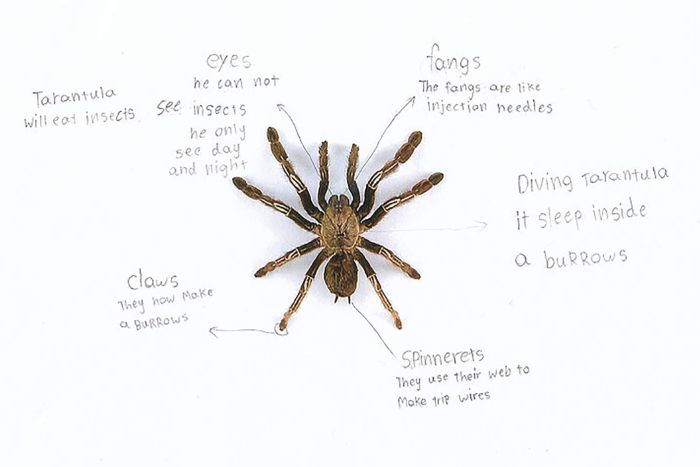 Tarantula
will eat insects
eyes
he can not
see insects
he only
see day
and night
fangs
The fangs are like
injection needles
Diving Tarantula
it sleep inside
a buRRows
claws
They how make
a BURROWS
SPinnerets
They use their web to
Make trip wires